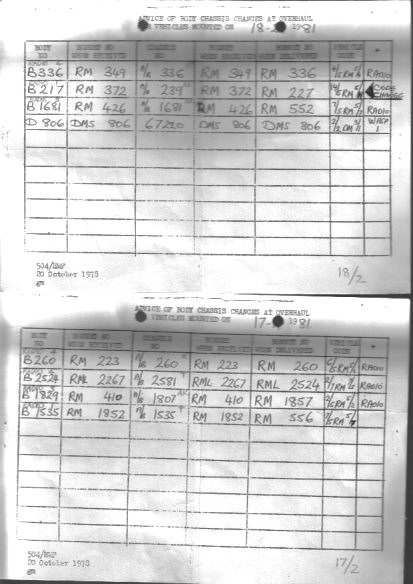 ADVICE OF BODY CHASSIS CHANGES AT OVERHAUL
VEHICLES MOUNTED ON 18-2 1981
BODY NO BONNET NO WHEN RECEIVED CHASSIS NO BONNET NO WHEN RECEIVED BONNET NO WHEN DELIVERED VEHICLE CODE *
RADIO
B336 RM 349 336 RM 349 RM 336 RADIO
B217 RM 372 239 RM 372 RM 227 CODE CHANGE
B1681 RM 426 1681 RM 426 RM 552 RADIO
D 806 DMS 806 67220 DMS 806 DMS 806
504/BMP
20 October 1978
gm
18/2
ADVICE OF BODY CHASSIS CHANGES AT OVERHAUL
VEHICLES MOUNTED ON 17- 1981
BODY NO BONNET NO WHEN RECEIVED CHASSIS NO BONNET NO WHEN RECEIVED BONNET NO WHEN DELIVERED VEHICLE CODE *
RADIO
B260 RM 223 260 RM 223 RM 260 RADIO
RADIO
B2524 RML 2267 2581 RML 2267 RML 2524 RADIO
RADIO
B1829 RM 410 1807 RM 410 RM 1857 RADIO
RADIO
B1535 RM 1852 1535 RM 1852 RM 556
504/BMP
20 October 1978
gm
17/2